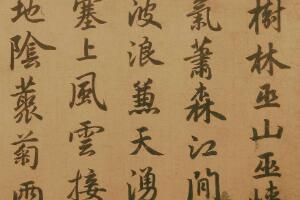 樹林巫山巫峽
氣蕭森江間
波浪兼天湧
塞上風雲接
地陰藂菊兩